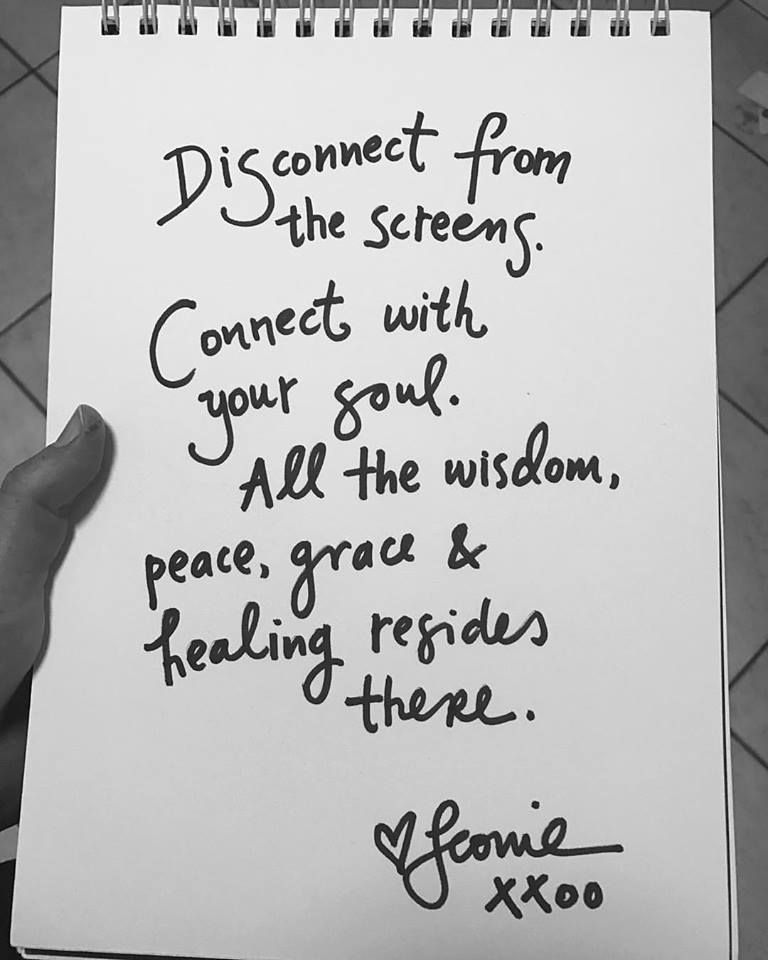 Disconnect from
the screens.
Connect with
your soul.
All the wisdom,
peace, grace &
healing resides
there.
♡Leonie
xxoo